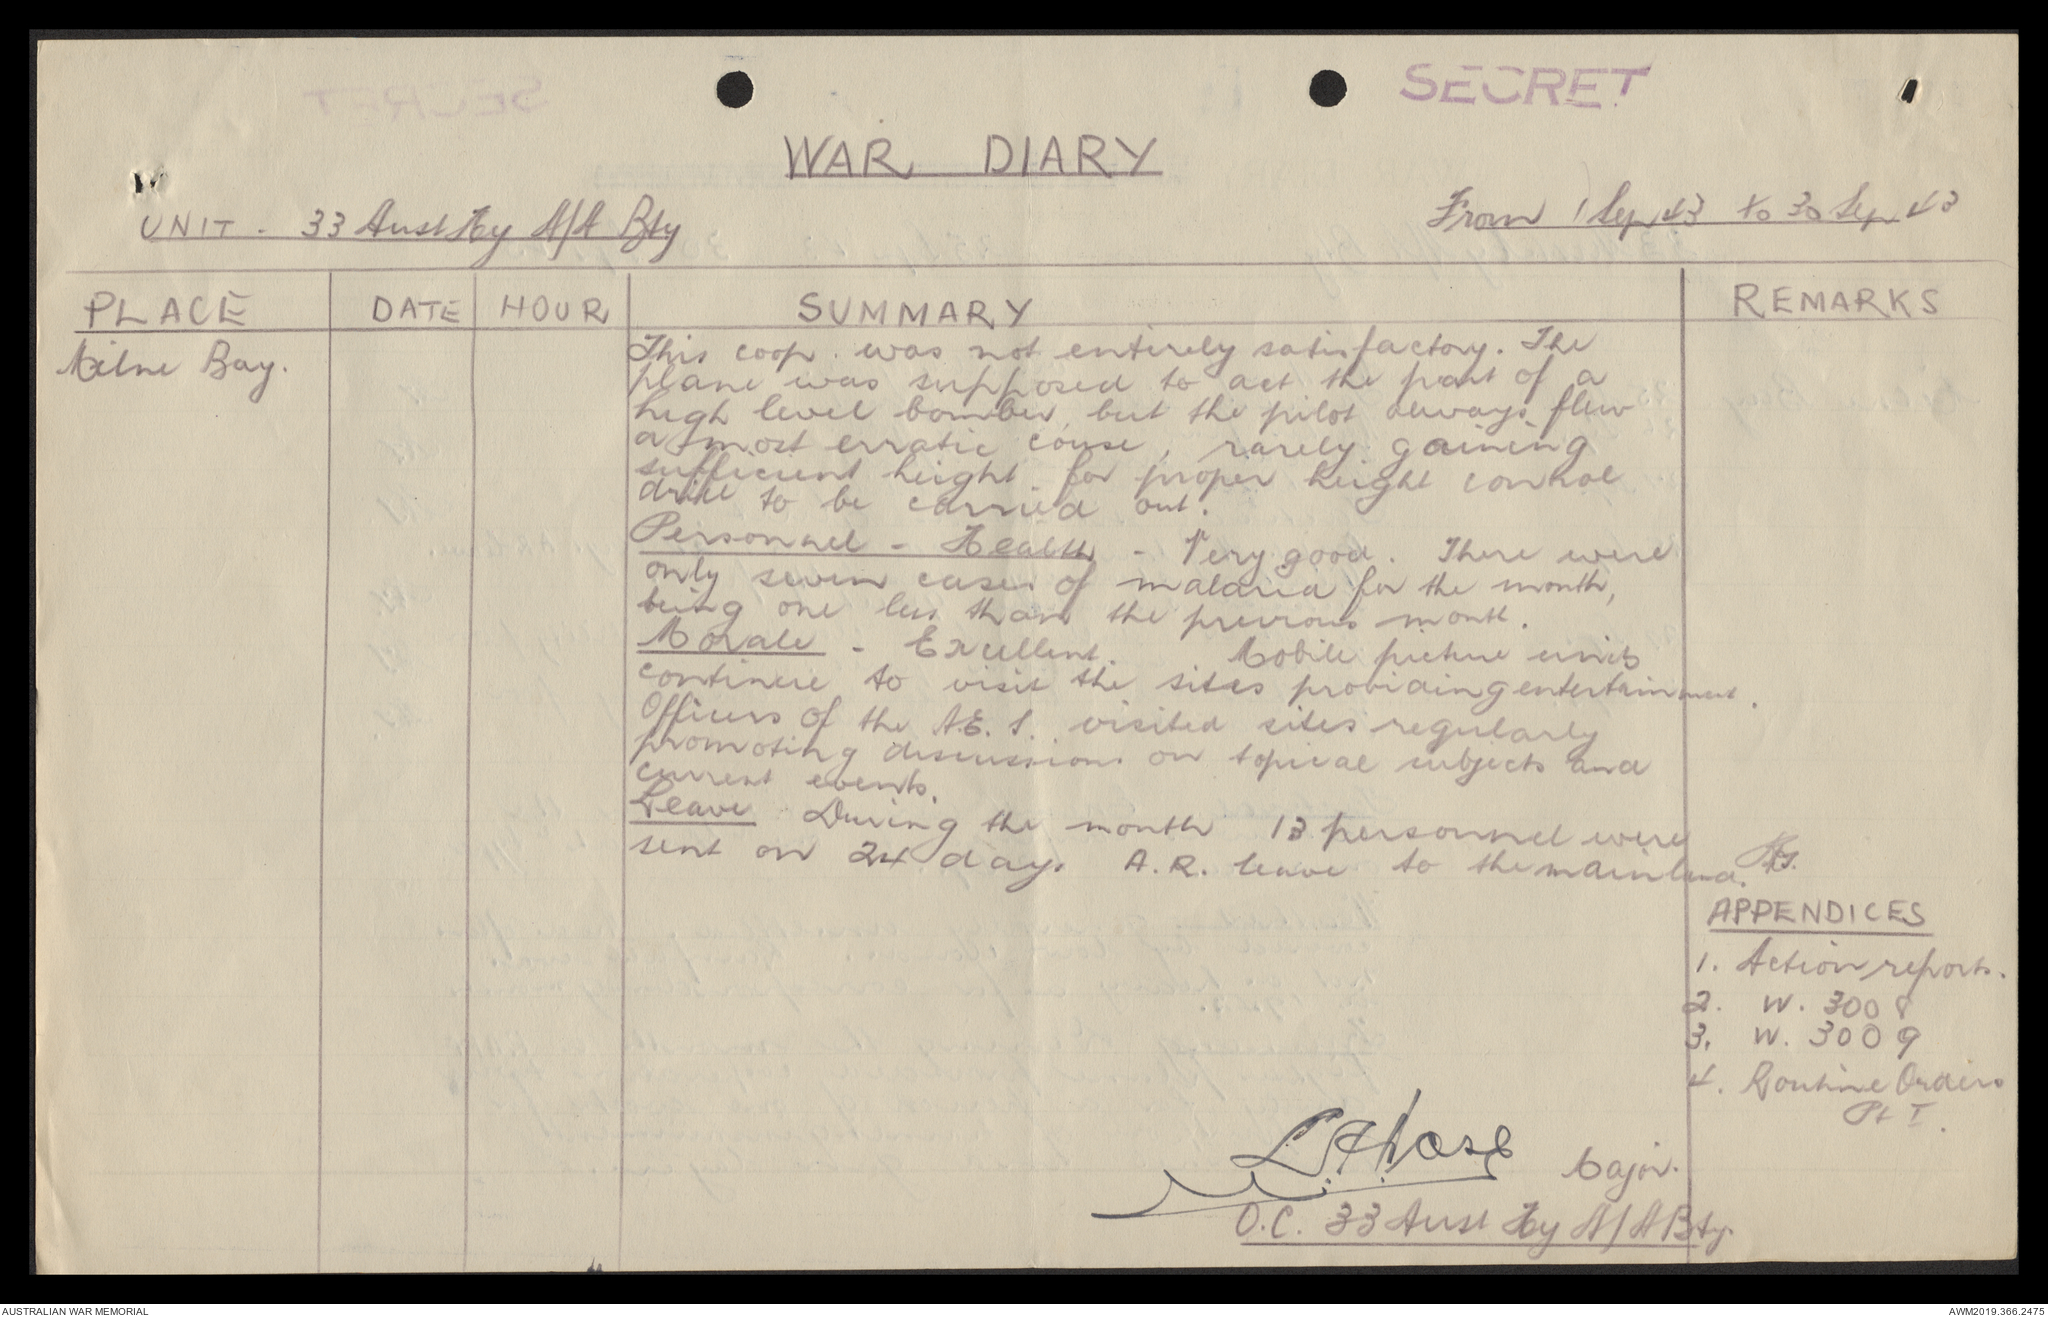 SECRET
WAR DIARY
UNIT - 33 Aust Hy A/A Bty
From 1 Sep 43 to 30 Sep 43
PLACE DATE HOUR SUMMARY REMARKS
Milne Bay.
This coop. was not entirely satisfactory. The
plane was supposed to act the part of a
high level bomber, but the pilot always flew
a most erratic couse, rarely gaining
sufficient height for proper height control
drill to be carried out.
Personnel - Health - Very good. There were
only seven cases of malaria for the month,
being one less than the previous month.
Morale - Excellent. Mobile picture units
continue to visit the sites providing entertainment.
Officers of the A.E.S. visited sites regularly
promoting discussions on topical subjects and
current events.
Leave During the month 13 personnel were
sent on 24 days A.R. leave to the mainland.
APPENDICES
1. Action reports.
2. W. 3008
3. W. 3009
4. Routine Orders
Pt I.
Major.
O.C. 33 Aust Hy A/A Bty.
AUSTRALIAN WAR MEMORIAL
AWM2019.366.2475